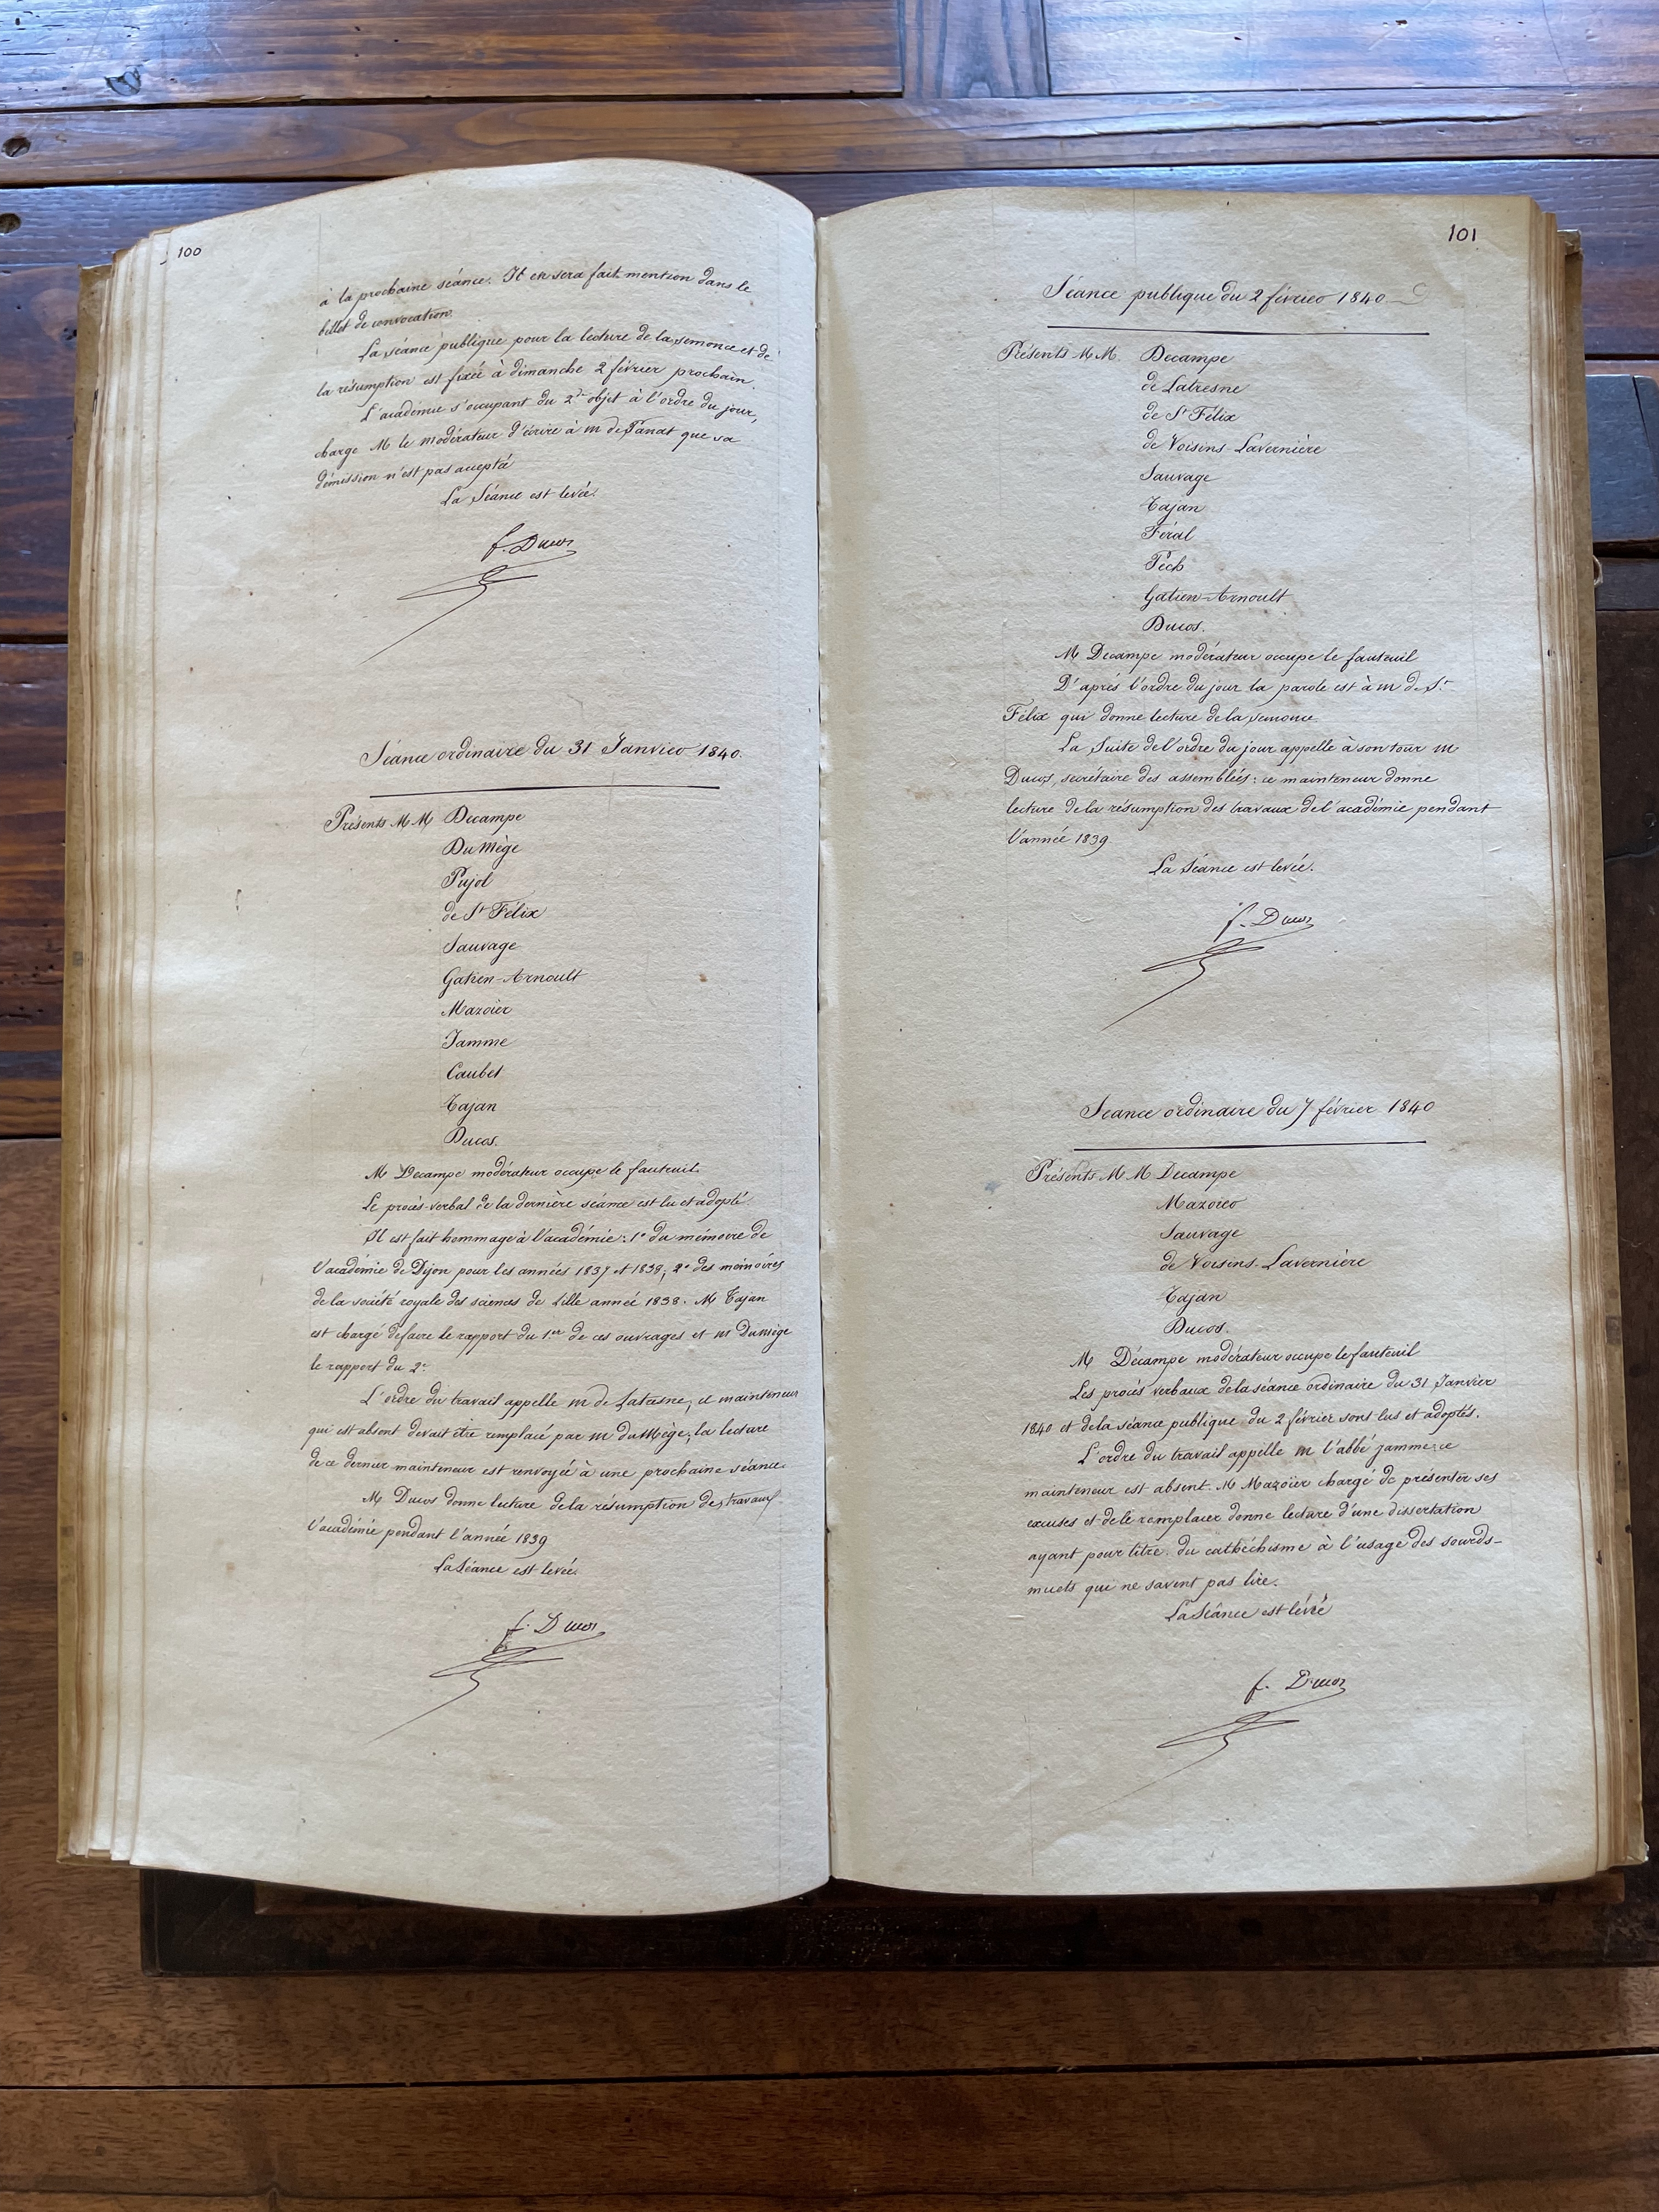 100
à la prochaine séance. Il en sera fait mention dans le
billet de convocation.
La séance publique pour la lecture de la semonce et de
la résumption est fixée à dimanche 2 février prochain.
L'académie s'occupant du 2d objet à l'ordre du jour,
charge M le modérateur d'écrire à m de Panat que sa
démission n'est pas accepté
La Séance est levée.
f. Ducos
Séance ordinaire du 31 Janvier 1840.
Présents M M Decampe
Du Mège
Pujol
de St Félix
Sauvage
Gatien-Arnoult
Mazoïer
Jamme
Caubet
Tajan
Ducos.
M Decampe modérateur occupe le fauteuil.
Le procès-verbal de la dernière séance est lu et adopté.
Il est fait hommage à l'académie: 1° du mémoire de
l'académie de Dijon pour les années 1837 et 1838; 2° des mémoires
de la société royale des sciences de Lille année 1838. M Tajan
est chargé de faire le rapport du 1er de ces ouvrages et m Dumège
le rapport du 2e
L'ordre du travail appelle m de Latresne, ce mainteneur
qui est absent devait être remplacé par m du Mège, la lecture
de ce dernier mainteneur est renvoyée à une prochaine séance.
M Ducos donne lecture de la résumption des travaux
l'académie pendant l'année 1839
La Séance est levée.
f. Ducos
101
Séance publique du 2 février 1840
Présents M M. Decampe
de Latresne
de St Félix
de Voisins Lavernière
Sauvage
Tajan
Féral
Pech
Gatien-Arnoult
Ducos.
M Decampe modérateur occupe le fauteuil
D'après l'ordre du jour la parole est à m de St
Félix qui donne lecture de la semonce
La Suite de l'ordre du jour appelle à son tour m
Ducos, secrétaire des assemblées: ce mainteneur donne
lecture de la résumption des travaux de l'académie pendant
l'année 1839
La Séance est levée.
f. Ducos
Séance ordinaire du 7 février 1840
Présents M M Decampe
Mazoïer
Sauvage
de Voisins-Lavernière
Tajan
Ducos.
M Décampe modérateur occupe le fauteuil
Les procès verbaux de la séance ordinaire du 31 Janvier
1840 et de la séance publique du 2 février sont lus et adoptés.
L'ordre du travail appelle m l'abbé jamme; ce
mainteneur est absent. M Mazoïer chargé de présenter ses
excuses et de le remplacer donne lecture d'une dissertation
ayant pour titre. du cathéchisme à l'usage des sourds-
muets qui ne savent pas lire.
La Séance est lévée
f. Ducos